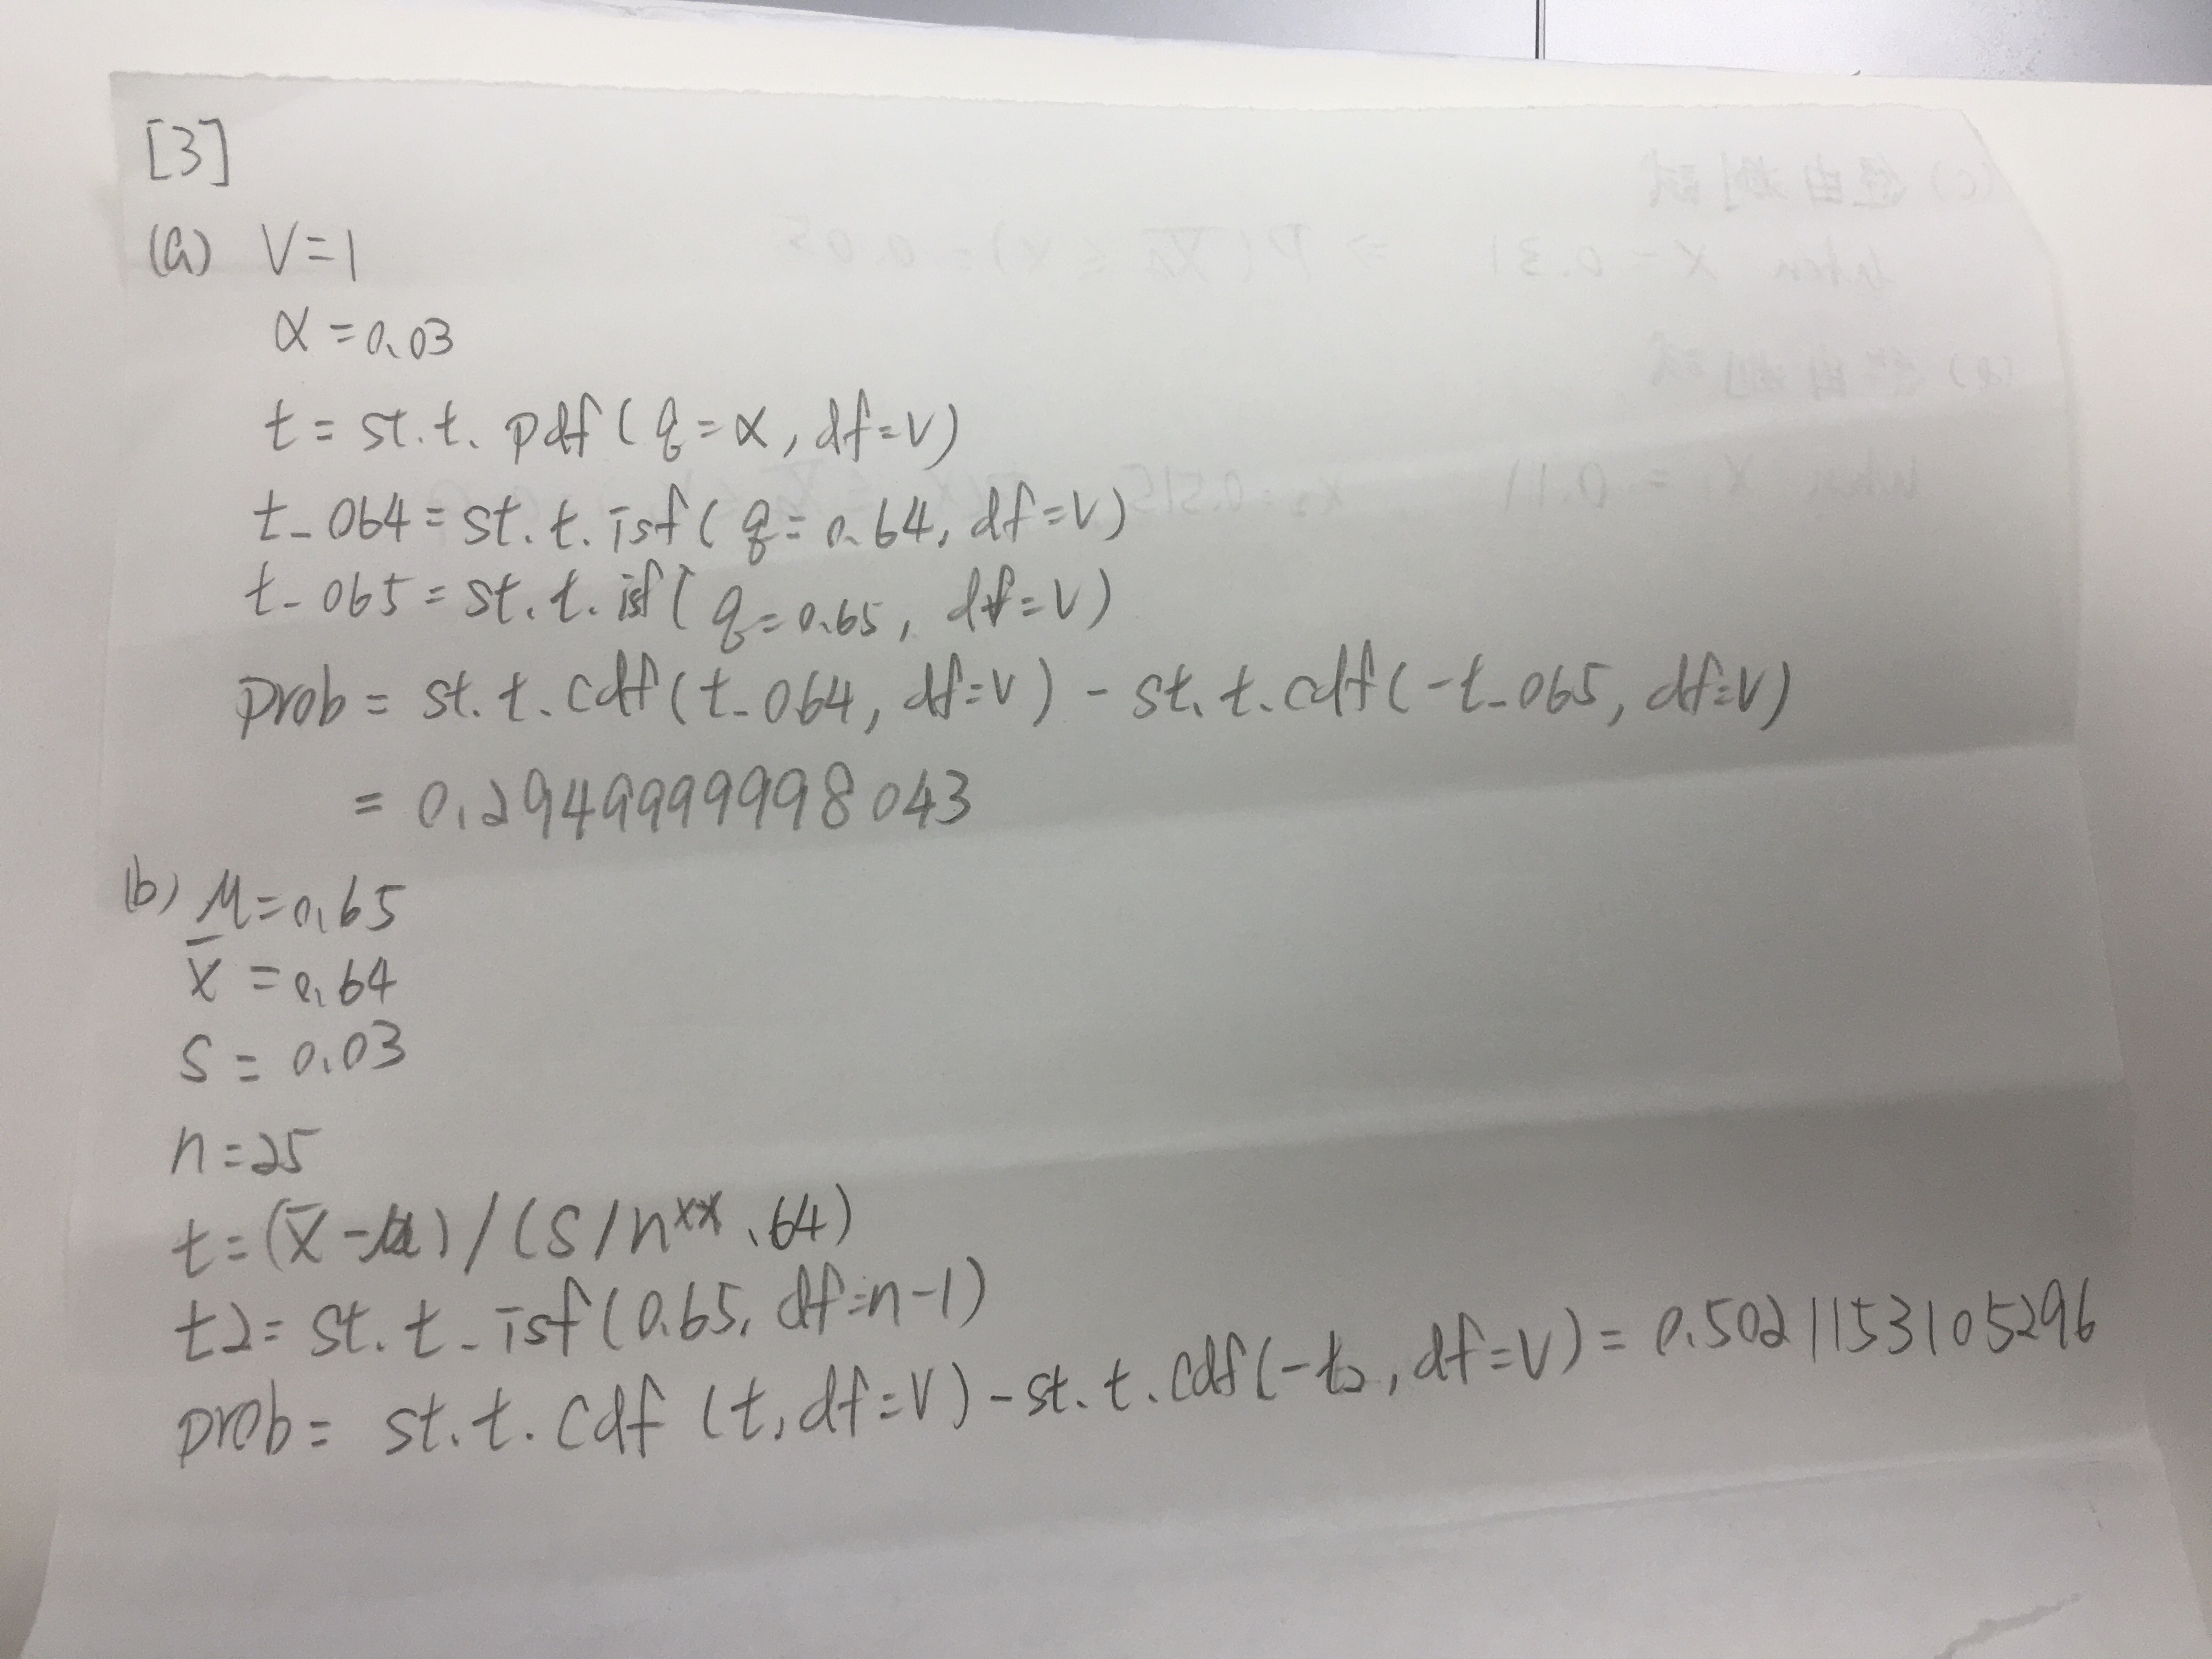 [3]
(a) V=1
α=0.03
t=st.t.pdf(q=α, df=V)
t_064=st.t.isf(q=0.64, df=V)
t_065=st.t.isf(q=0.65, df=V)
prob=st.t.cdf(t_064, df=V)-st.t.cdf(-t_065, df=V)
=0.2949999998043
(b) μ=0.65
x̄=0.64
S=0.03
n=25
t=(x̄-μ)/(S/n**.64)
t2=st.t_isf(0.65, df=n-1)
prob=st.t.cdf(t, df=V)-st.t.cdf(-t2, df=V)=0.5021153105296
(c) 經由測試
when x=0.31 ⇒ P(X̄5≤x)=0.05
(d) 經由測試
when x1=0.11 x2=0.515